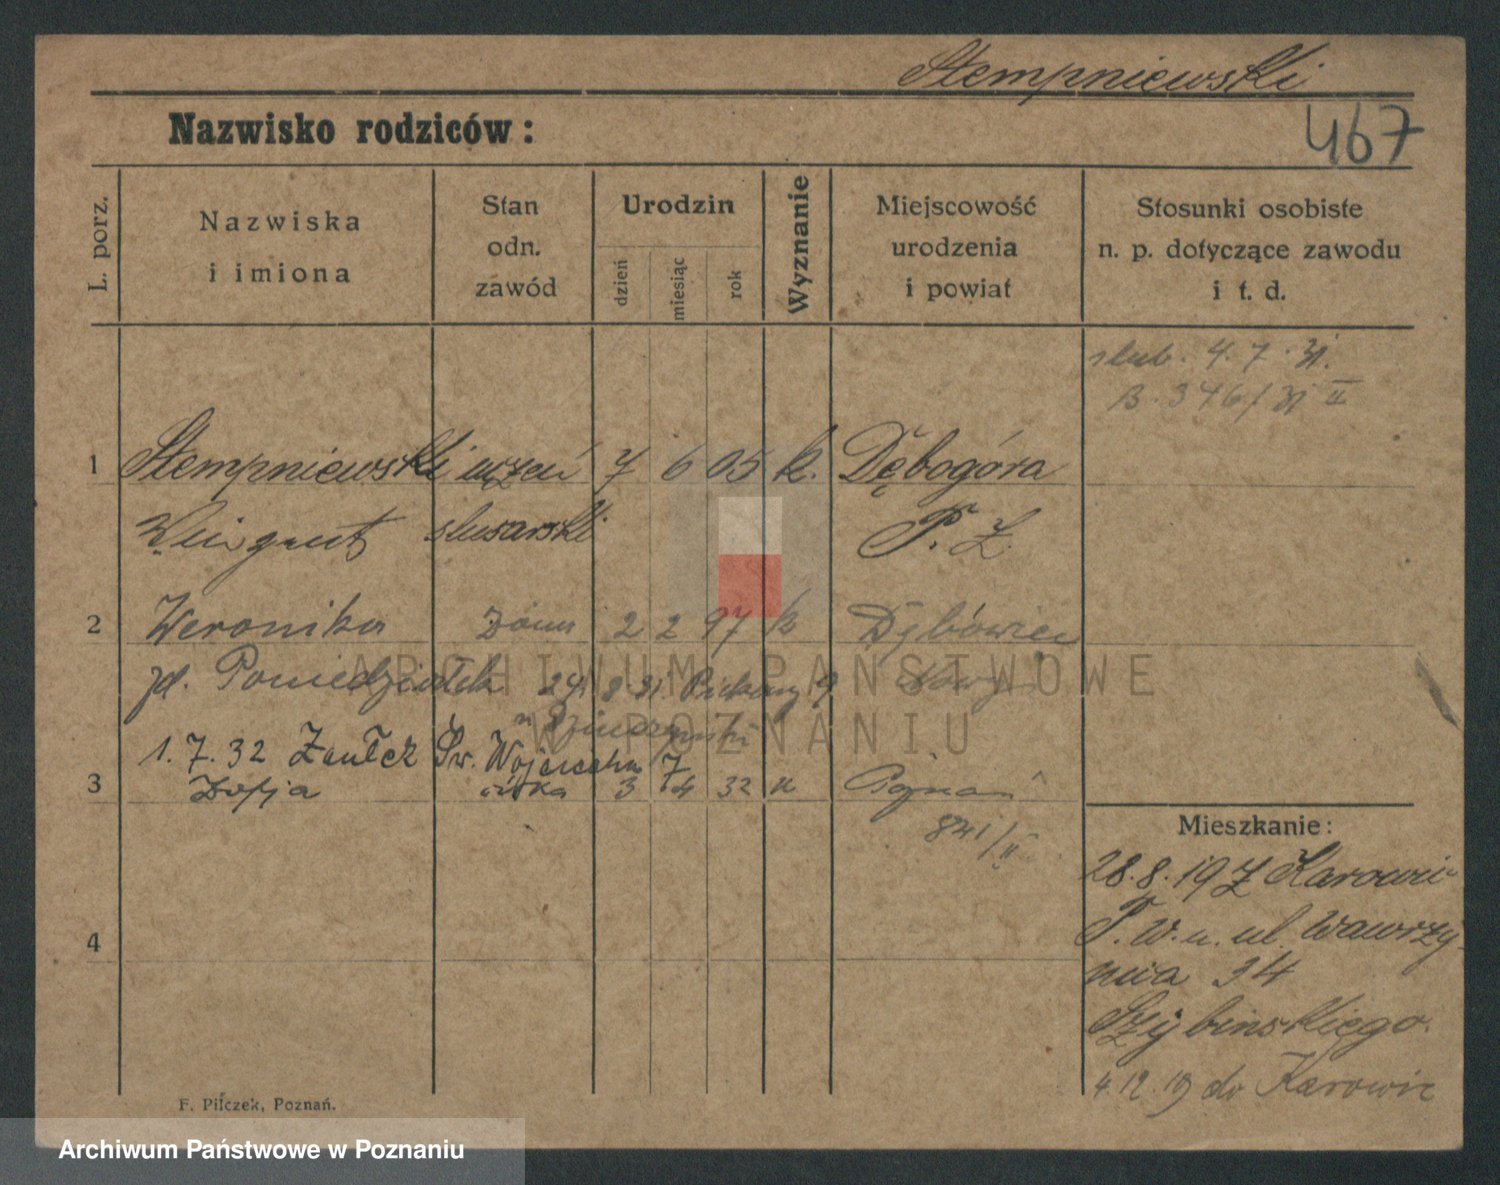 Stempniewski
467
Nazwisko rodziców:
L. porz.
Nazwiska
i imiona
Stan
odn.
zawód
Urodzin
dzień
miesiąc
rok
Wyznanie
Miejscowość
urodzenia
i powiat
Stosunki osobiste
n. p. dotyczące zawodu
i t. d.
slub. 4.7.31.
B. 346/31 II
1 Stempniewski uczeń 7 6 05 k. Dębogóra
slusarski P. Z.
2 Weronika 2 2 97 k
zd. Poniedziałek
1.7.32 Zaułek Św. Wojciecha 7
3 Zofja córka 3 4 32 k Poznań
841/II
Mieszkanie:
28.8.19 Z Karowic
P. W. u. ul. Wawrzy-
nia 34
Szybinskiego.
4.12.19 do Karowic
4
F. Pilczek, Poznań.
ARCHIWUM PAŃSTWOWE
W POZNANIU
Archiwum Państwowe w Poznaniu